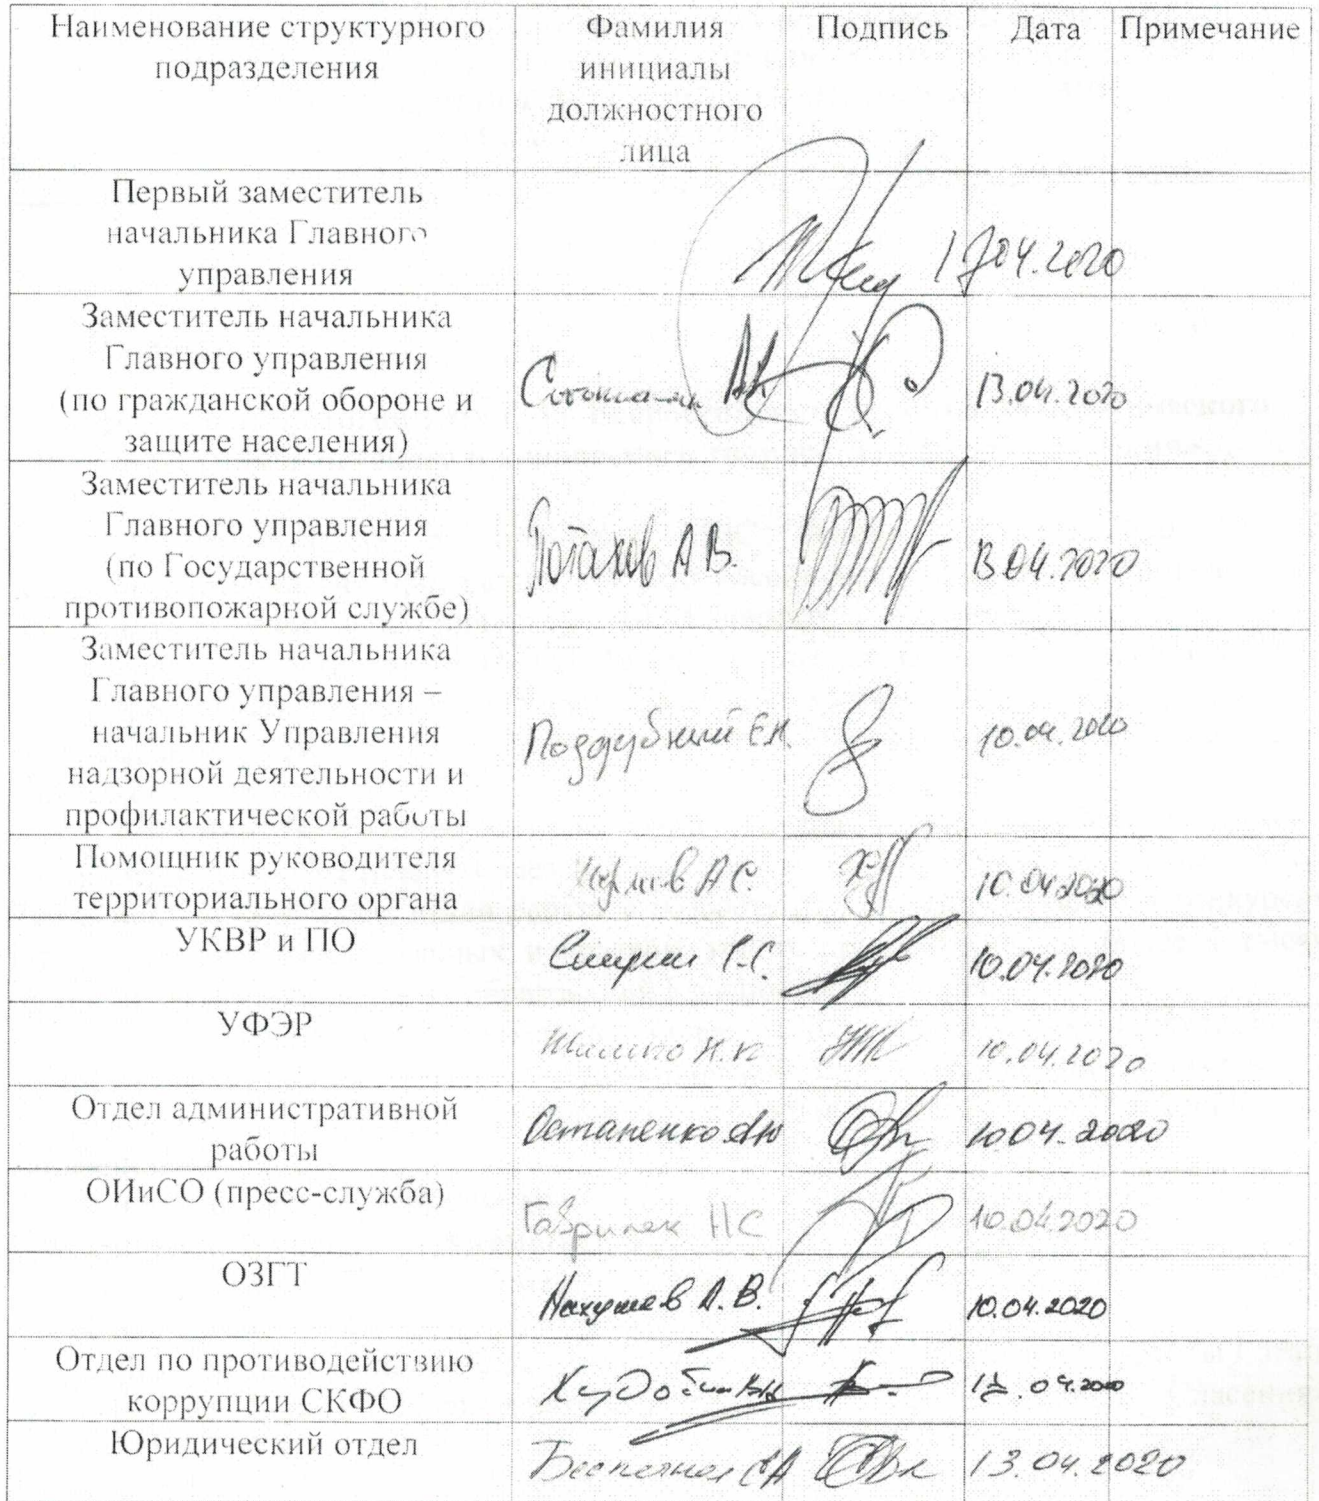 Наименование структурного
подразделения
Фамилия
инициалы
должностного
лица
Подпись
Дата
Примечание
Первый заместитель
начальника Главного
управления
04.2020
Заместитель начальника
Главного управления
(по гражданской обороне и
защите населения)
13.04.2020
Заместитель начальника
Главного управления
(по Государственной
противопожарной службе)
Потахов А В.
13.04.2020
Заместитель начальника
Главного управления –
начальник Управления
надзорной деятельности и
профилактической работы
Поддубный Е.Н.
10.04.2020
Помощник руководителя
территориального органа
А С.
10.04.2020
УКВР и ПО
10.04.2020
УФЭР
10.04.2020
Отдел административной
работы
Остапенко
10.04.2020
ОИиСО (пресс-служба)
Гаврилек НС
10.04.2020
ОЗГТ
Нахушев А.В.
10.04.2020
Отдел по противодействию
коррупции СКФО
04.2020
Юридический отдел
13.04.2020